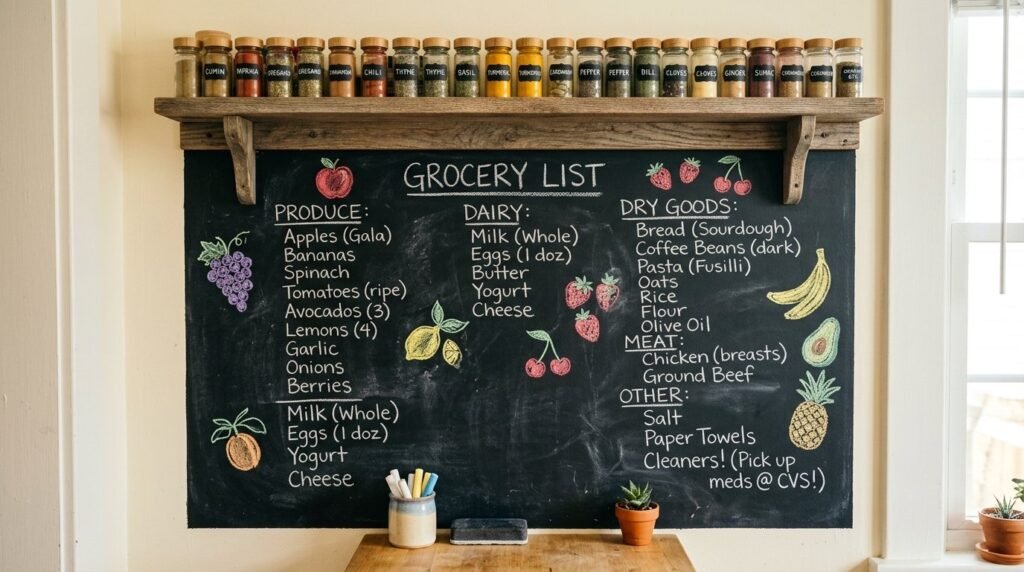 CUMIN
PAPRIKA
OREGANO
OREGANO
CHILI
THYNE
THYME
BASIL
TURMERIC
PEPPER
PEPPER
DILL
CLOVES
CLOVES
GINGER
SUMAC
GROCERY LIST
PRODUCE:
Apples (Gala)
Bananas
Spinach
Tomatoes (ripe)
Avocados (3)
Lemons (4)
Garlic
Onions
Berries
Milk (Whole)
Eggs (1 doz)
Yogurt
Cheese
DAIRY:
Milk (Whole)
Eggs (1 doz)
Butter
Yogurt
Cheese
DRY GOODS:
Bread (Sourdough)
Coffee Beans (dark)
Pasta (Fusilli)
Oats
Rice
Flour
Olive Oil
MEAT:
Chicken (breasts)
Ground Beef
OTHER:
Salt
Paper Towels
Cleaners! (Pick up
meds @ CVS!)